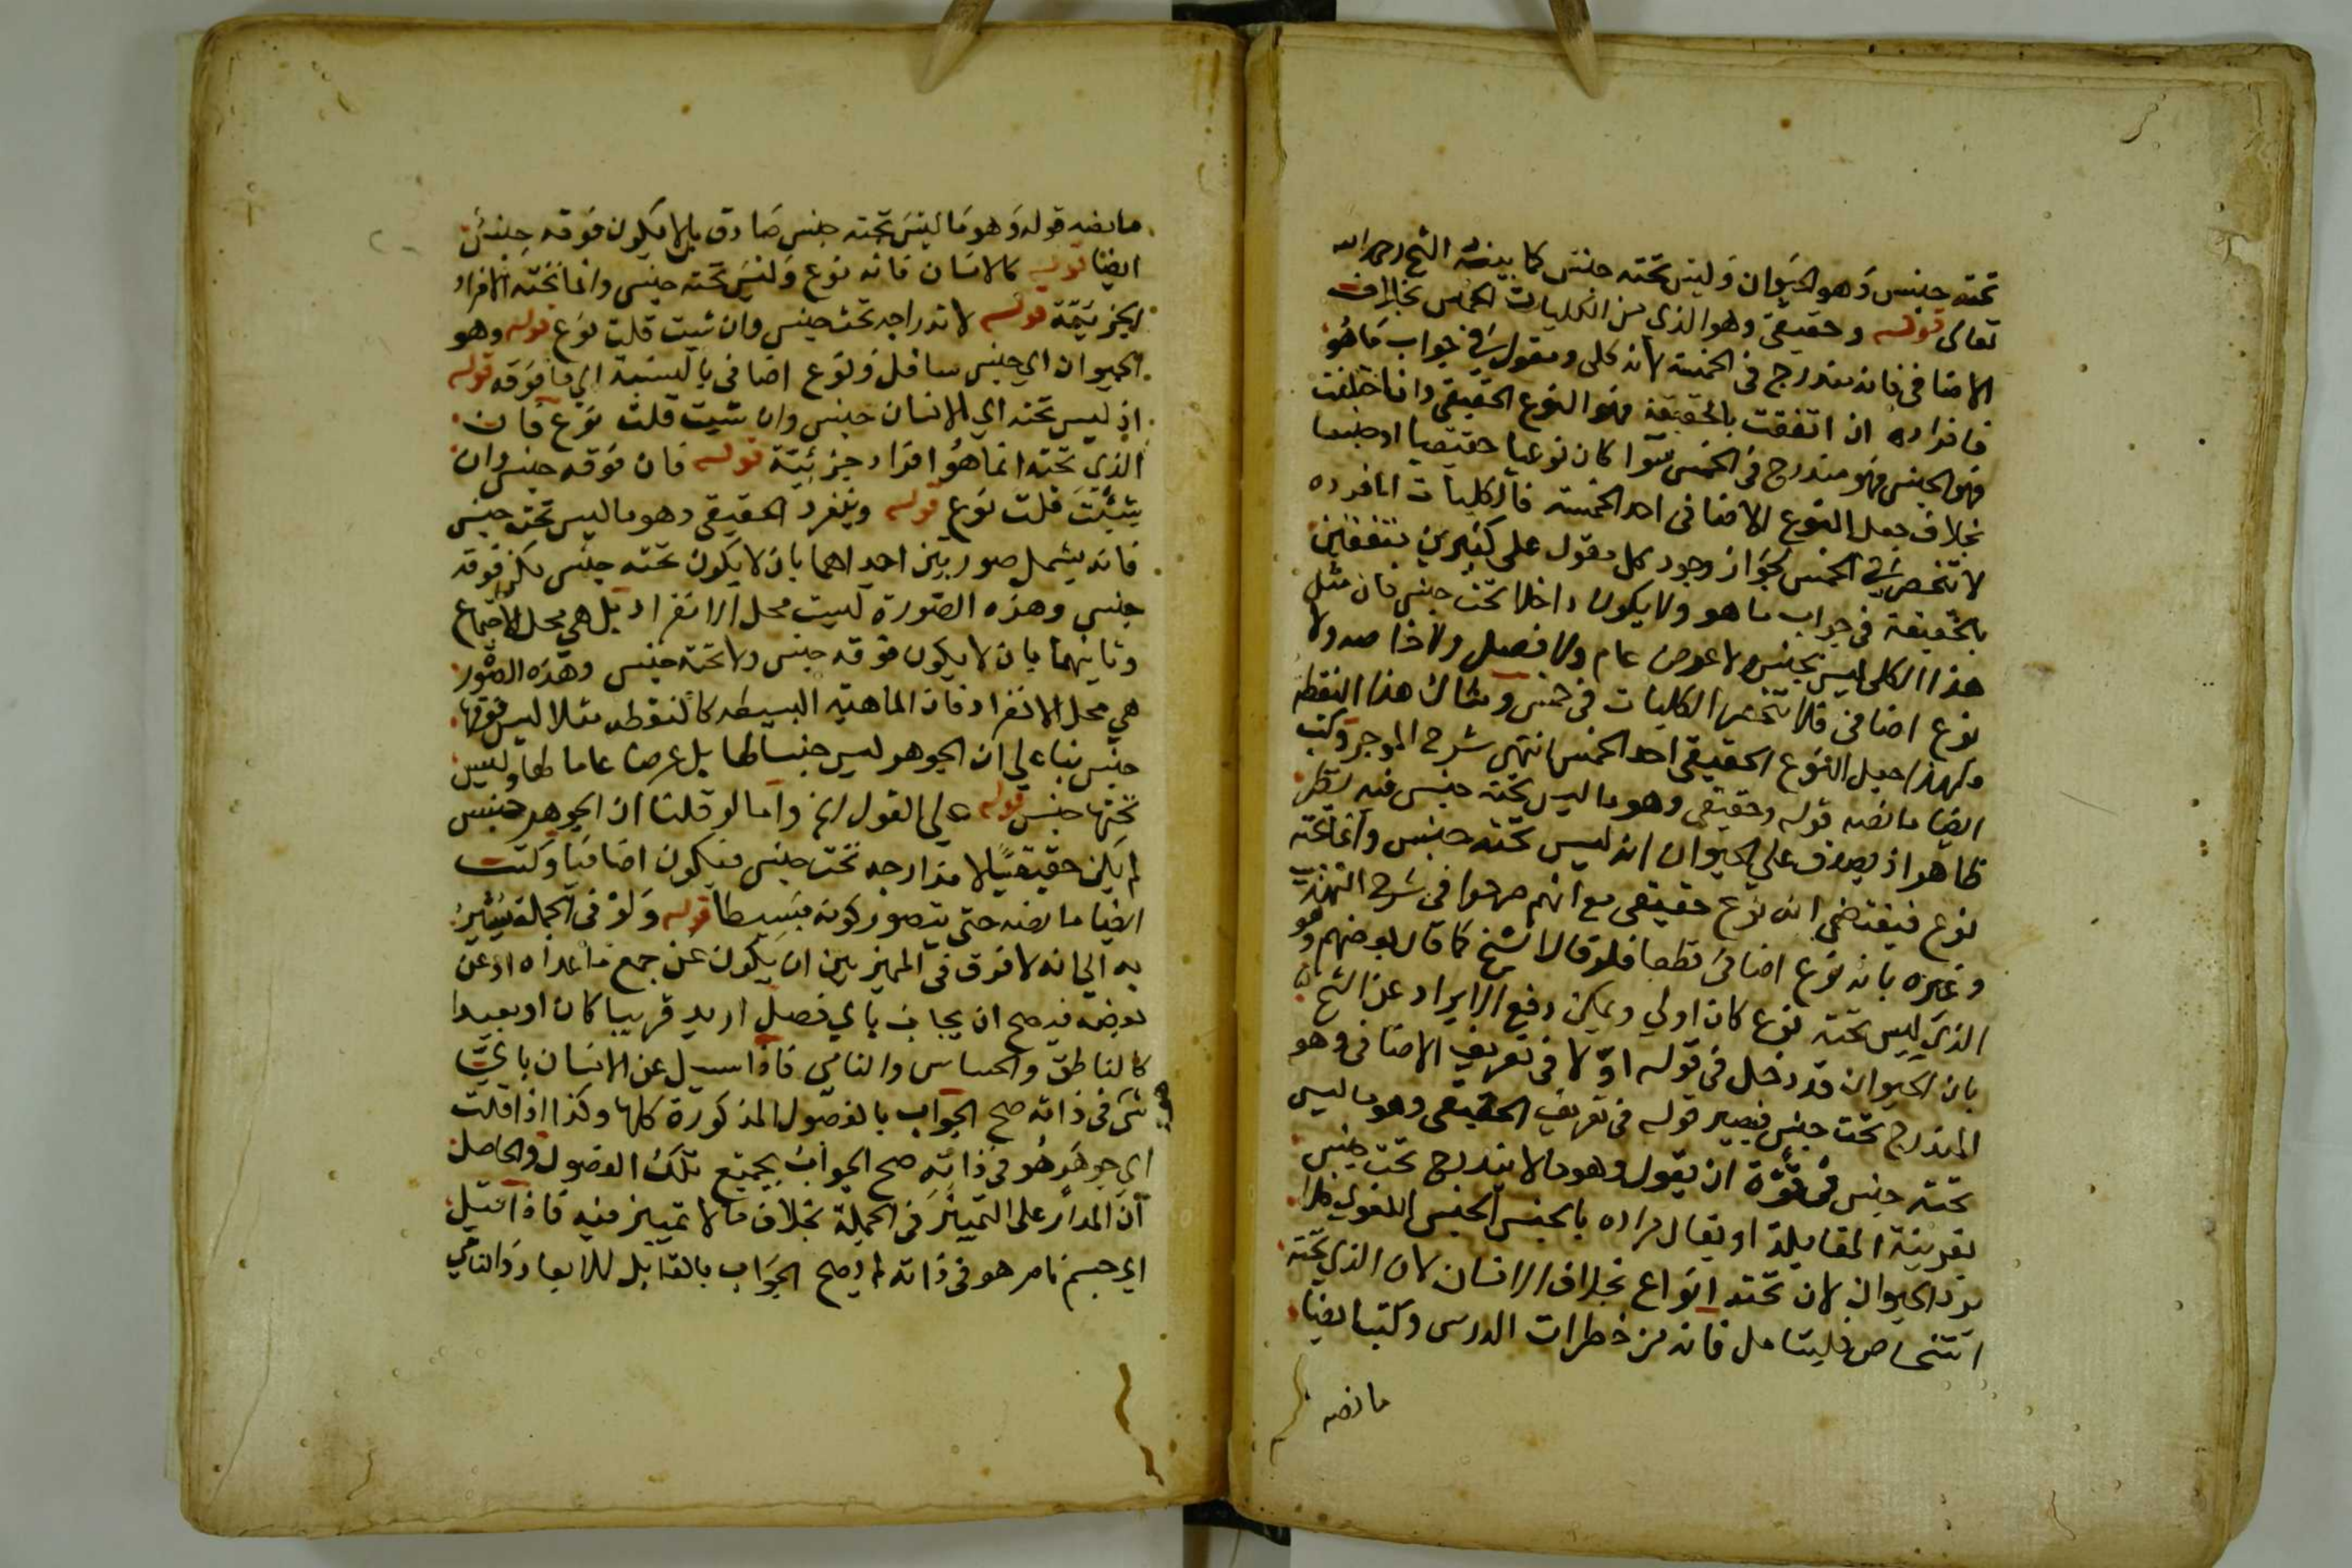 تحته جنس وهو الحيوان وليس تحته جنس كما بينه الشيخ رحمه الله
تعالى قوله وحقيقي وهو الذي من الكليات الخمس بخلاف
الاضافي فانه مندرج في الخمسة لانه كلي ومقول في جواب ما هو
فافراده ان اتفقت بالحقيقة فهو النوع الحقيقي وان اختلفت
فهو الجنس فهو مندرج في الخمس سوا كان نوعيا حقيقيا او جنسا
بخلاف جعل النوع الاضافي احد الخمسة فالكليات افراده
لا تنحصر في الخمس لجواز وجود كل مقول على كثيرين متفقين
بالحقيقة في جواب ما هو ولا يكون داخلا تحت جنس فان مثل
هذا الكلي ليس بجنس ولا عرض عام ولا فصل ولا خاصه ولا
نوع اضافي فلا تنحصر الكليات في خمس ومثال هذا النقطه
ولهذا جعل النوع الحقيقي احد الخمس انتهى شرح الموجز وكتب
ايضا ما نصه قوله وحقيقي وهو ما ليس تحته جنس فيه نظر
ظاهر اذ يصدق على الحيوان انه ليس تحته جنس وانما تحته
نوع فيقتضي انه نوع حقيقي مع انهم صرحوا في شرح التهذيب
وغيره بانه نوع اضافي قطعا فلو قال الشيخ كما قال بعضهم وهو
الذي ليس تحته نوع كان اولي ويمكن دفع الايراد عن الشيخ
بان الحيوان قد دخل في قوله اولا في تعريف الاضافي وهو
المندرج تحت جنس فيصير قوله في تعريف الحقيقي وهو ما ليس
تحته جنس في قوة ان يقول وهو ما لا يندرج تحت جنس
بقرينة المقابلة او يقال مراده بالجنس الجنس اللغوي فلا
يرد الحيوان لان تحته انواع بخلاف الانسان لان الذي تحته
اشخاص فليتامل فانه من خطرات الدرس وكتب ايضا
ما نصه
ما نصه قوله وهو ما ليس تحته جنس صادق بالا يكون فوقه جنس
ايضا قوله كالانسان فانه نوع وليس تحته جنس وانما تحته الافراد
الجزئية قوله لاندراجه تحت جنس وان شيت قلت نوع قوله وهو
الحيوان اي جنس سافل ونوع اضافي بالنسبة الي ما فوقه قوله
اذ ليس تحته اي الانسان جنس وان شيت قلت نوع فان
الذي تحته انما هو افراد جزئية قوله فان فوقه جنس وان
شئت قلت نوع قوله وينفرد الحقيقي وهو ما ليس تحته جنس
فانه يشمل صورتين احداهما بان لا يكون تحته جنس لكن فوقه
جنس وهذه الصورة ليست محل الانفراد بل هي محل الاجتماع
وثانيهما بان لا يكون فوقه جنس ولا تحته جنس وهذه الصورة
هي محل الانفراد فان الماهية البسيطه كالنقطه مثلا ليس فوقها
جنس بناء علي ان الجوهر ليس جنسا لها بل عرضا عاما لها وليس
تحتها جنس قوله علي القول الخ واما لو قلنا ان الجوهر جنس
لم يكن حقيقيا لاندراجه تحت جنس فيكون اضافيا وكتب
ايضا ما نصه حتى يتصور كونه بسيطا قوله ولو في الجملة يشير
به الي انه لا فرق في المميز بين ان يكون عن جمع ما عداه او عن
بعضه فيصح ان يجاب باي فصل اريد قريبا كان او بعيدا
كالناطق والحساس والنامي فاذا سيل عن الانسان باي
شي هو في ذاته صح الجواب بالفصول المذكورة كلها وكذا اذا قلت
اي جوهر هو في ذاته صح الجواب بجميع تلك الفصول والحاصل
ان المدار على التمييز في الجملة بخلاف ما لا تمييز فيه فاذا قيل
اي جسم نام هو في ذاته لم يصح الجواب بالقابل للابعاد والنامي